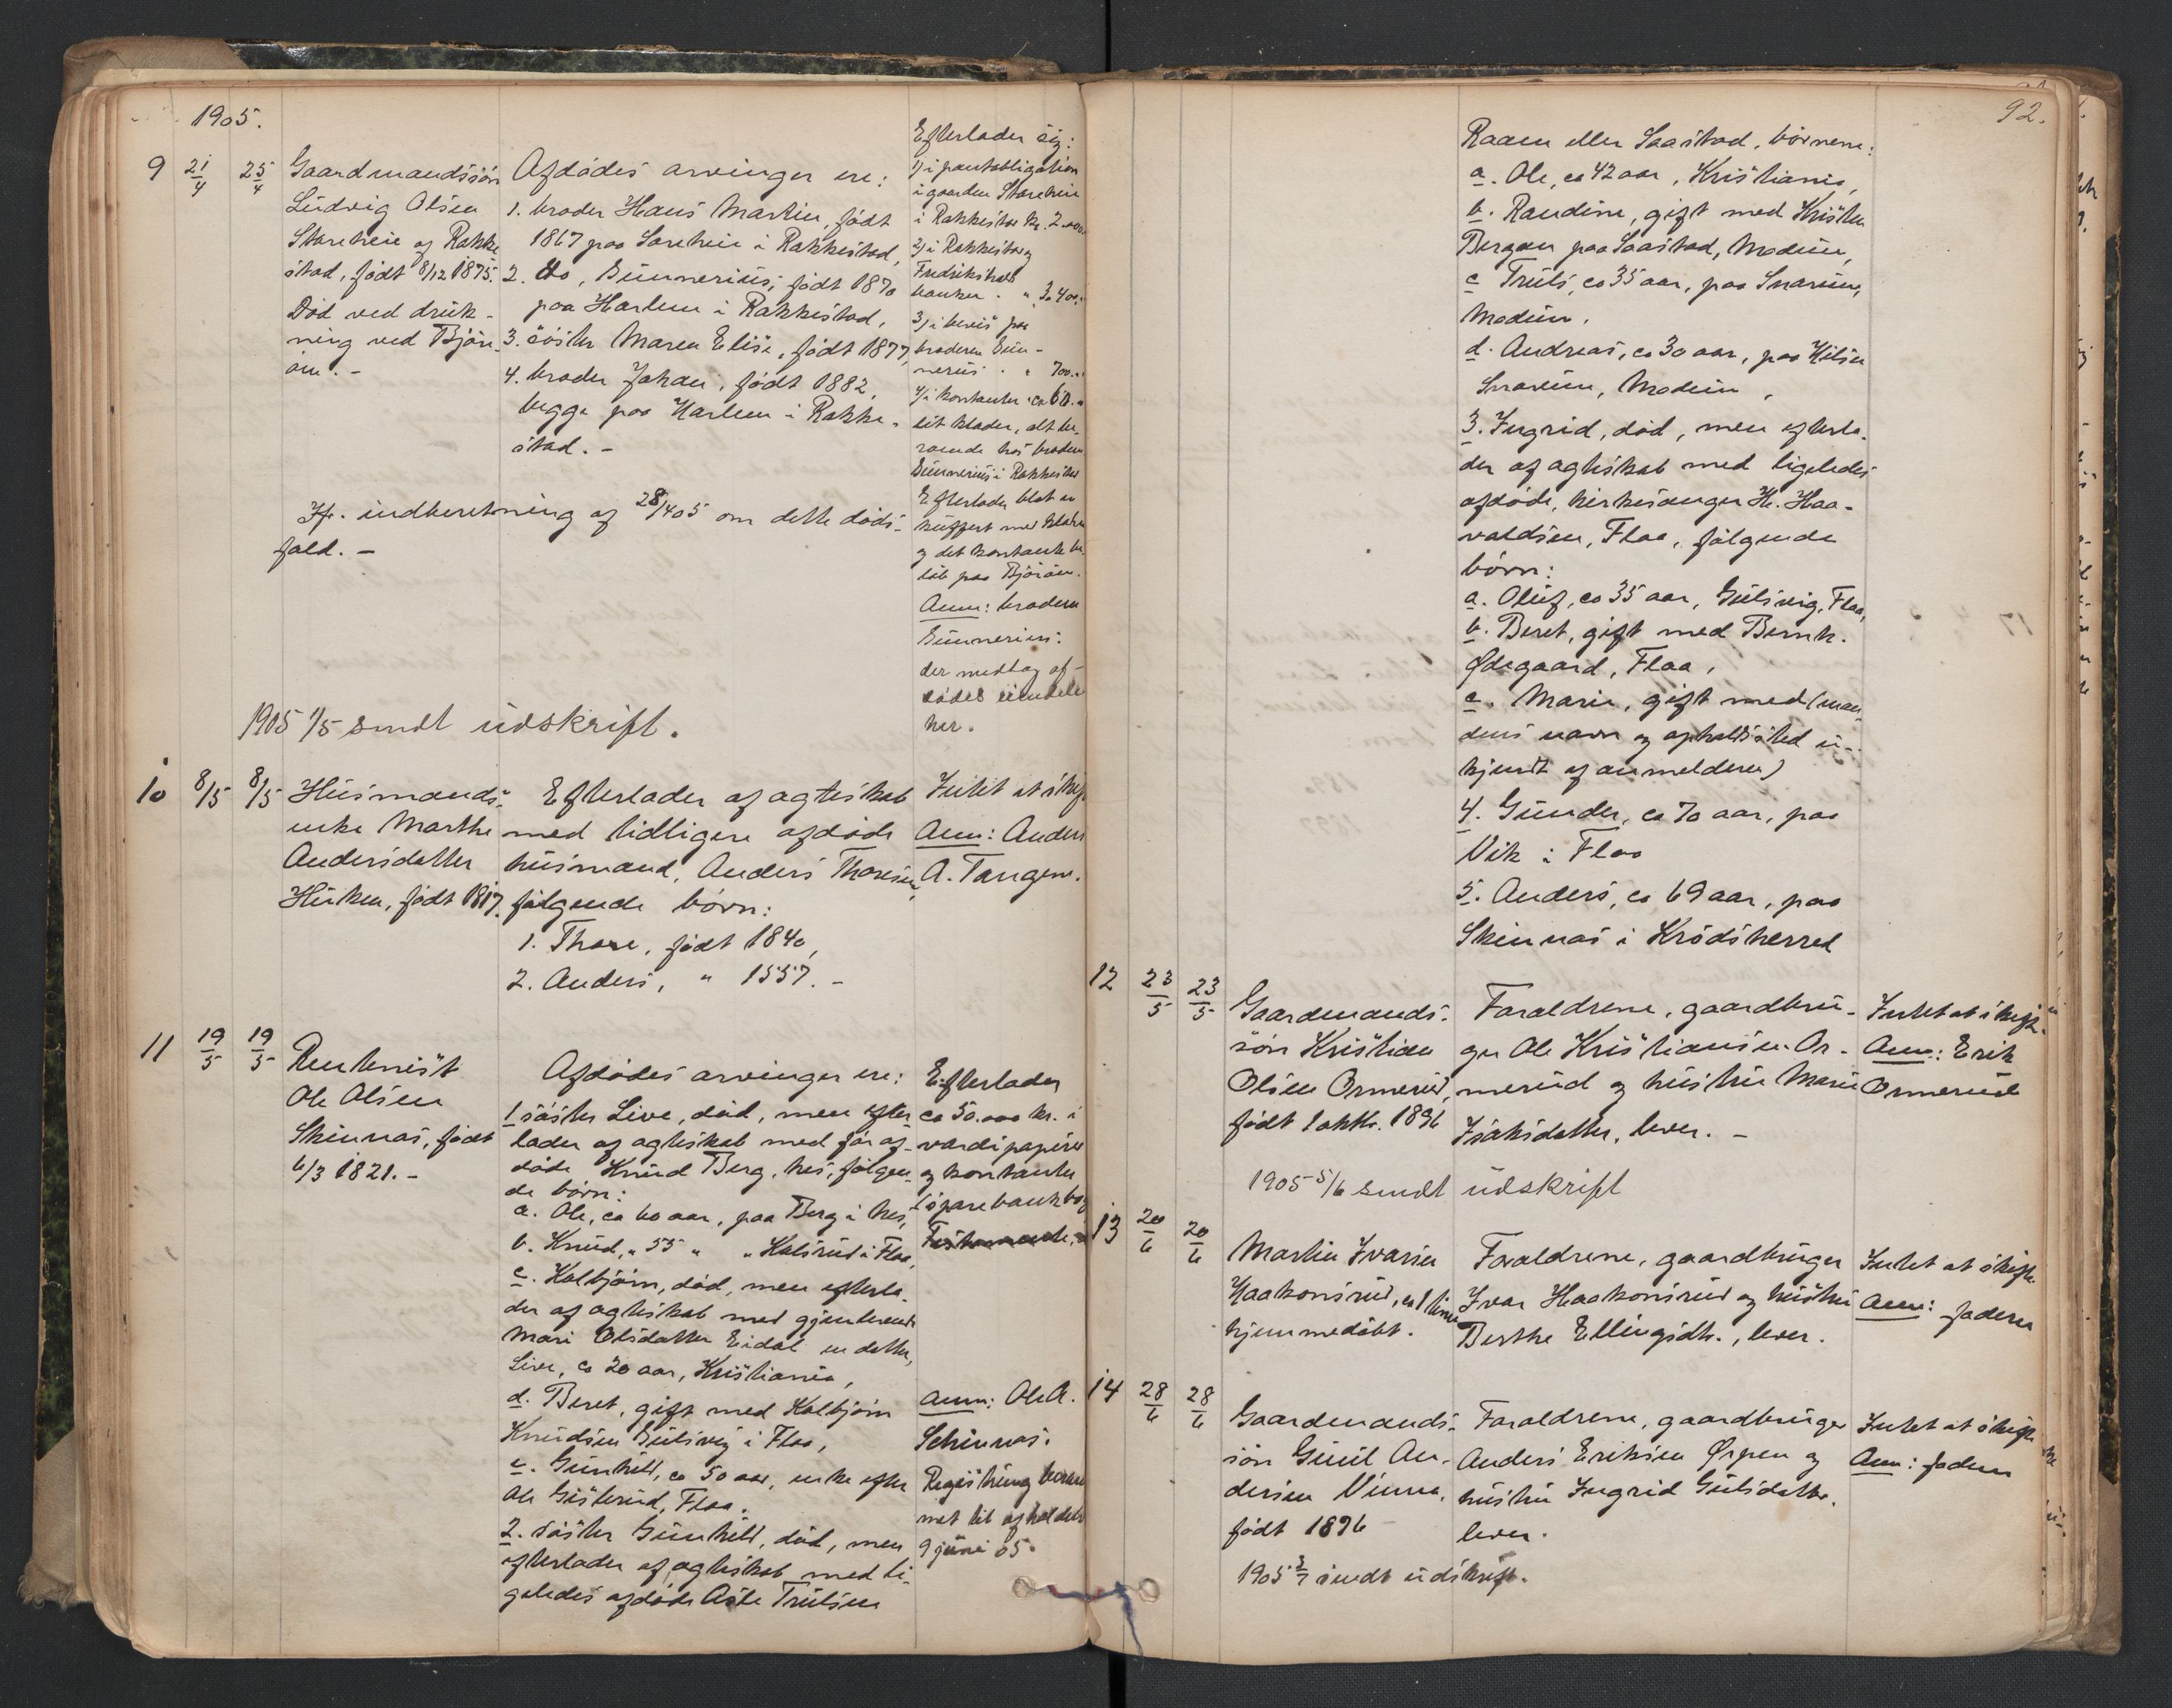 1905.
9 21/4 25/4
Gaardmandssøn
Ludvig Olsen
Storeheie af Rakke
stad, født 8/12 1875.
Død ved druk-
ning ved Bjøre-
øen. -
Afdødes arvinger ere:
1. broder Hans Martin, født
1867 paa Soreheie i Rakkestad,
2. do, Gunnerius, født 1870
paa Harlem i Rakkestad,
3. søster Maren Elise, født 1877,
4. broder Johan, født 1882,
begge paa Harlem i Rakke-
stad. -
Efterlader sig:
1) i pantobligation
i gaarden Storeheie
i Rakkestad kr. 2.000
2) i Rakkestad og
Fredrikshald
banker. " 3.400.
3) i bevis paa
broderen Gun-
nerius . " 700..
4) i kontanter ca 60..
lidt klæder, alt be-
roende hos broderen
Gunnerius i Rakkestad
Efterlader blot en
kuffert med klæder
og det kontante be-
løb paa Bjørøen.
Anm: broderen
Gunnerius:
der medtog af-
dødes eiendele
her.
Jfr. indberetning af 28/4 05 om dette døds-
fald. -
1905 1/5 sendt udskrift.
10 8/5 8/5
Husmands-
enke Marthe
Andersdatter
Hirken, født 1817.
Efterlader af ægteskab
med tidligere afdøde
husmand, Anders Thoresen,
følgende børn:
1. Thore, født 1840,
2. Anders, " 1557. -
Intet at skifte
Anm: Anders
A. Tangen.
11 19/5 19/5
Rentenist
Ole Olsen
Skinnæs, født
6/3 1821. -
Afdødes arvinger ere:
1 søster Live, død, men efter-
lader af ægteskab med før af-
døde Knud Berg, Nes, følgen-
de børn:
a. Ole, ca 60 aar, paa Berg i Nes,
b. Knud, " 55 " " Kolsrud i Flaa,
c. Kolbjørn, død, men efterla-
der af ægteskab med gjenlevende
Mari Olsdatter Eidal en datter,
Live, ca 20 aar, Kristiania,
d. Beret, gift med Kolbjørn
Knudsen Gulsvig i Flaa,
e. Gunhild, ca 50 aar, enke efter
Ole Gisterud, Flaa.
2. søster Gunhild, død, men
efterlader af ægteskab med li-
geledes afdøde Asle Trulsen
Efterlader
ca 50.000 kr. i
værdipapirer
og kontanter
(sparebankbog
Anm: Ole A.
Schinnæs.
Registrering beram-
met til afholdelse
9 juni 05.
92.
Raaen eller Saastad, børnene:
a. Ole, ca 42 aar, Kristiania,
b. Randine, gift med Kristen
Bergan paa Saastad, Modum,
c Truls, ca 35 aar, paa Snarum,
Modum.
d. Andreas, ca 30 aar, paa Hilsen
Snarum, Modum,
3. Ingrid, død, men efterla-
der af ægteskab med ligeledes
afdøde, kirkesanger H. Haa-
valdsen, Flaa, følgende
børn:
a. Oluf, ca 35 aar, Gulsvig, Flaa,
b. Beret, gift med Bernh.
Ødegaard, Flaa,
c. Marie, gift med (man-
dens navn og opholdssted u-
kjendt af anmelderen)
4. Gunder, ca 70 aar, paa
Vik i Flaa
5. Anders, ca 69 aar, paa
Skinnæs i Krødsherred
12 23/5 23/5
Gaardmands-
søn Kristian
Olsen Ormerud,
født 1 oktbr. 1896
Forældrene, gaardbru-
ger Ole Kristiansen Or-
merud og hustru Marie
Isaksdatter, lever. -
Intet at skifte.
Anm: Erik
Ormerud
1905 5/6 sendt udskrift
13 20/6 20/6
Martin Ivarsen
Haakonsrud, ca 1 time
hjemmedøbt.
Forældrene, gaardbruger
Ivar Haakonsrud og hustru
Berthe Ellingsdtr., lever.
Intet at skifte
Anm: faderen
14 28/6 28/6
Gaardmands-
søn Guul An-
dersen Vinna,
født 1896
Forældrene, gaardbruger
Anders Eriksen Ørpen og
hustru Ingrid Gulsdatter,
lever.
Intet at skifte
Anm: faderen
1905 3/7 sendt udskrift.